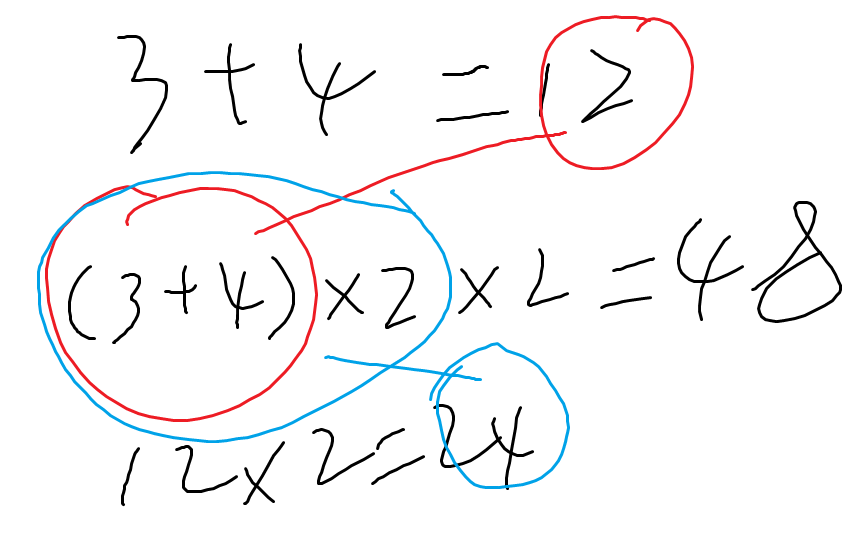 3+4=12
(3+4)×2×2=48
12×2=24